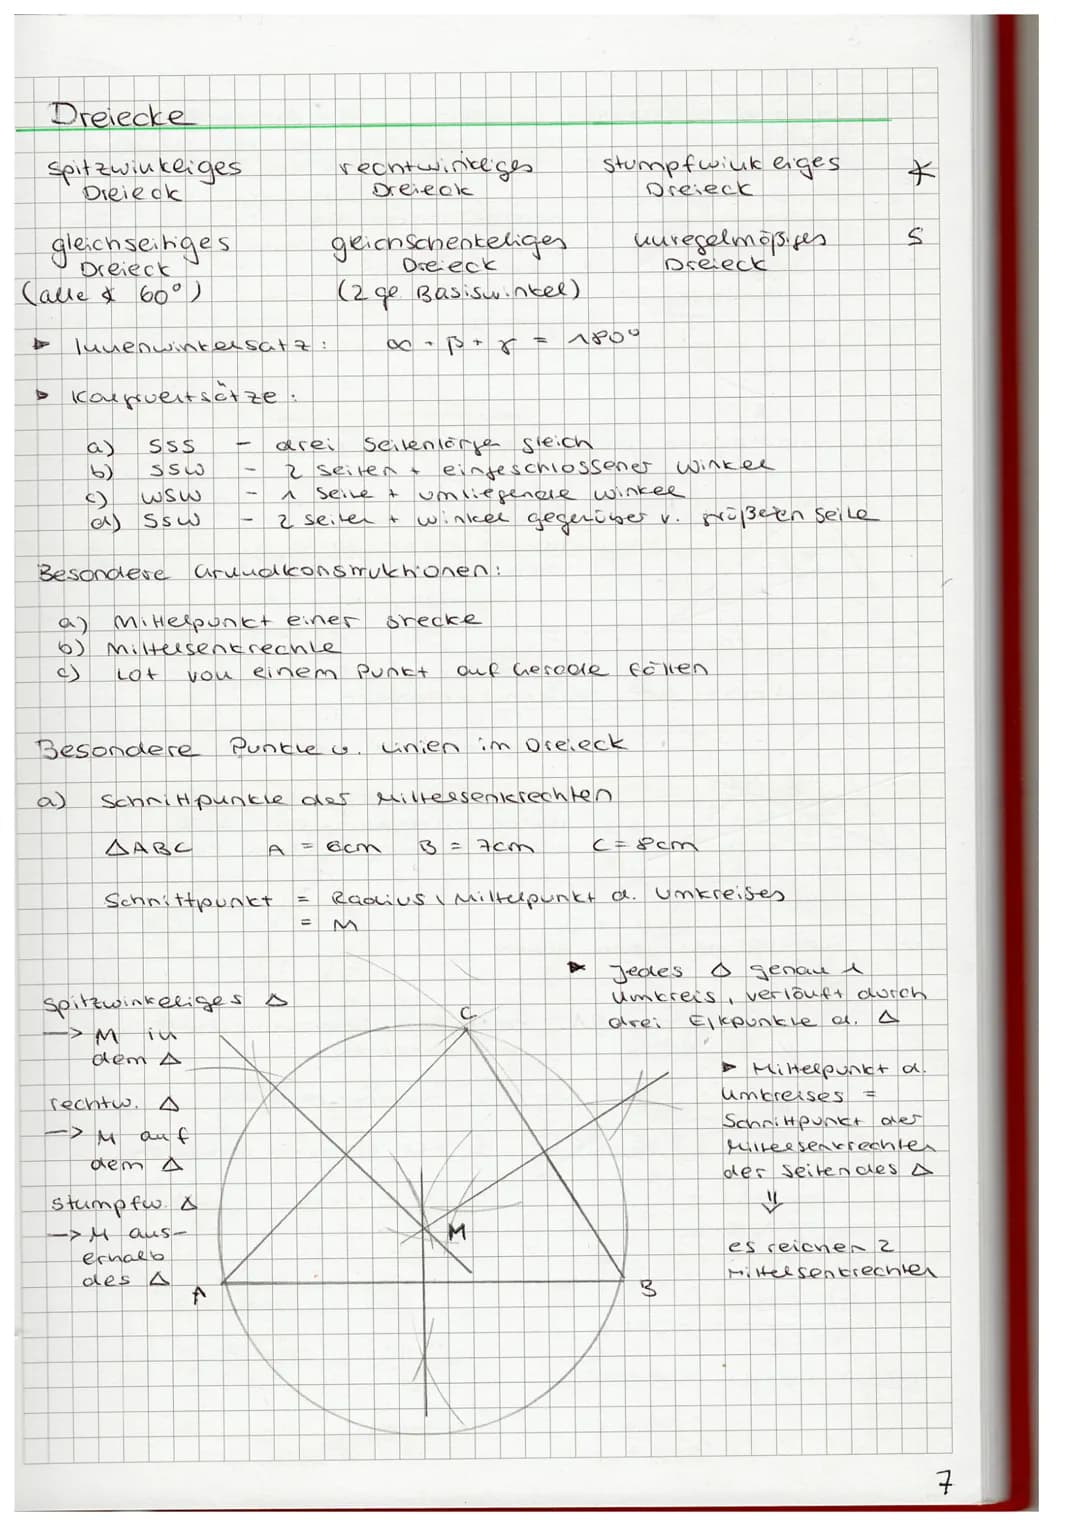 Dreiecke
spitzwinkeliges rechtwinkeliges stumpfwinkeliges ∡
Dreieck Dreieck Dreieck
gleichseitiges gleichschenkeliges unregelmäßiges S
Dreieck Dreieck Dreieck
(alle ∡ 60°) (2 gl. Basiswinkel)
▸ Innenwinkelsatz: α + β + γ = 180°
▸ Kongruentsätze:
a) SSS - drei Seitenlänge gleich
b) SSW - 2 Seiten + eingeschlossener Winkel
c) WSW - 1 Seite + umliegende Winkel
d) SsW - 2 Seiten + Winkel gegenüber v. größeren Seite
Besondere Grundkonstruktionen:
a) Mittelpunkt einer Strecke
b) Mittelsenkrechte
c) Lot von einem Punkt auf Gerade fällen
Besondere Punkte u. Linien im Dreieck
a) Schnittpunkte der Mittelsenkrechten
△ABC A = 6cm B = 7cm C = 8cm
Schnittpunkt = Radius \ Mittelpunkt d. Umkreises
= M
▸ Jedes △ genau 1
Umkreis, verläuft durch
drei Eckpunkte d. △
spitzwinkeliges △
→ M in
dem △
rechtw. △
→ M auf
dem △
stumpfw. △
→ M aus-
erhalb
des △
C
M
A
B
▸ Mittelpunkt d.
Umkreises =
Schnittpunkt der
Mittelsenkrechten
der Seiten des △
⇓
es reichen 2
Mittelsenkrechten
7